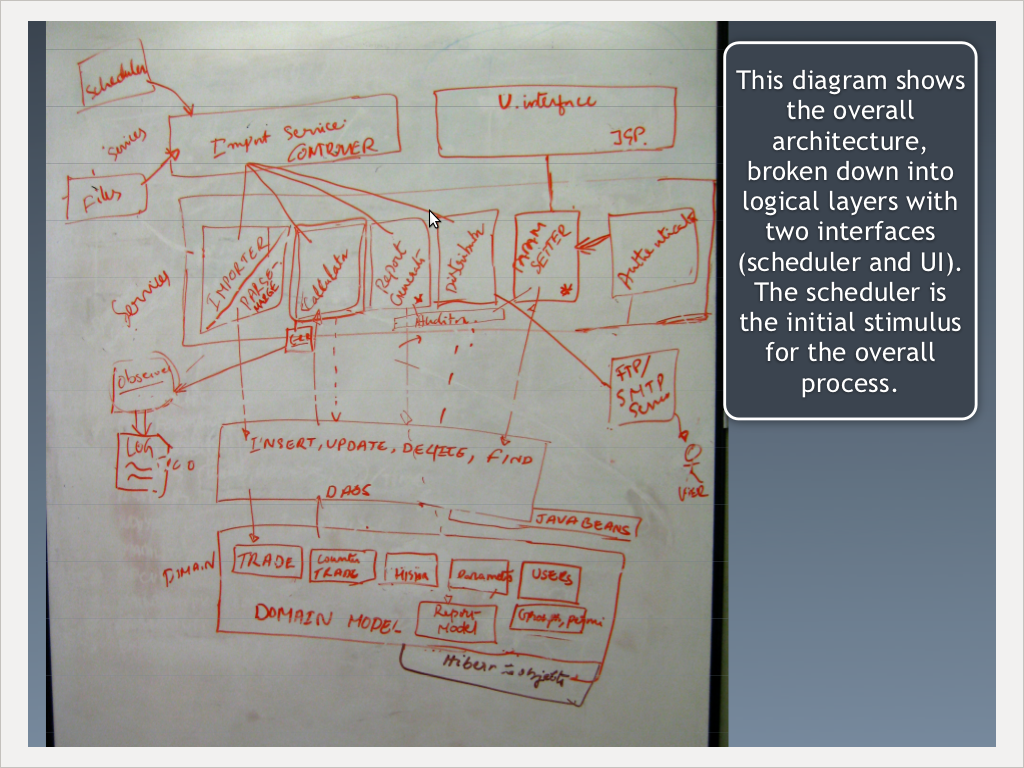 Scheduler
Import Service
CONTROLLER
U. interface
JSP.
Services
Files
Services
IMPORTER
PARSE-
MERGE
Calculator
Report
Generator
*
Distributor
PARAM
SETTER
*
Authenticate
Auditor
Observer
LOG
FTP/
SMTP
Server
USER
INSERT, UPDATE, DELETE, FIND
DAOS
JAVA BEANS
DOMAIN
TRADE
Counter
TRADE
Parameter
USERS
Report
Model
Groups, permi
DOMAIN MODEL
objects
This diagram shows
the overall
architecture,
broken down into
logical layers with
two interfaces
(scheduler and UI).
The scheduler is
the initial stimulus
for the overall
process.